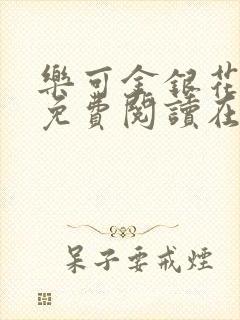 樂可金銀花
免費閱讀在
呆子要戒煙